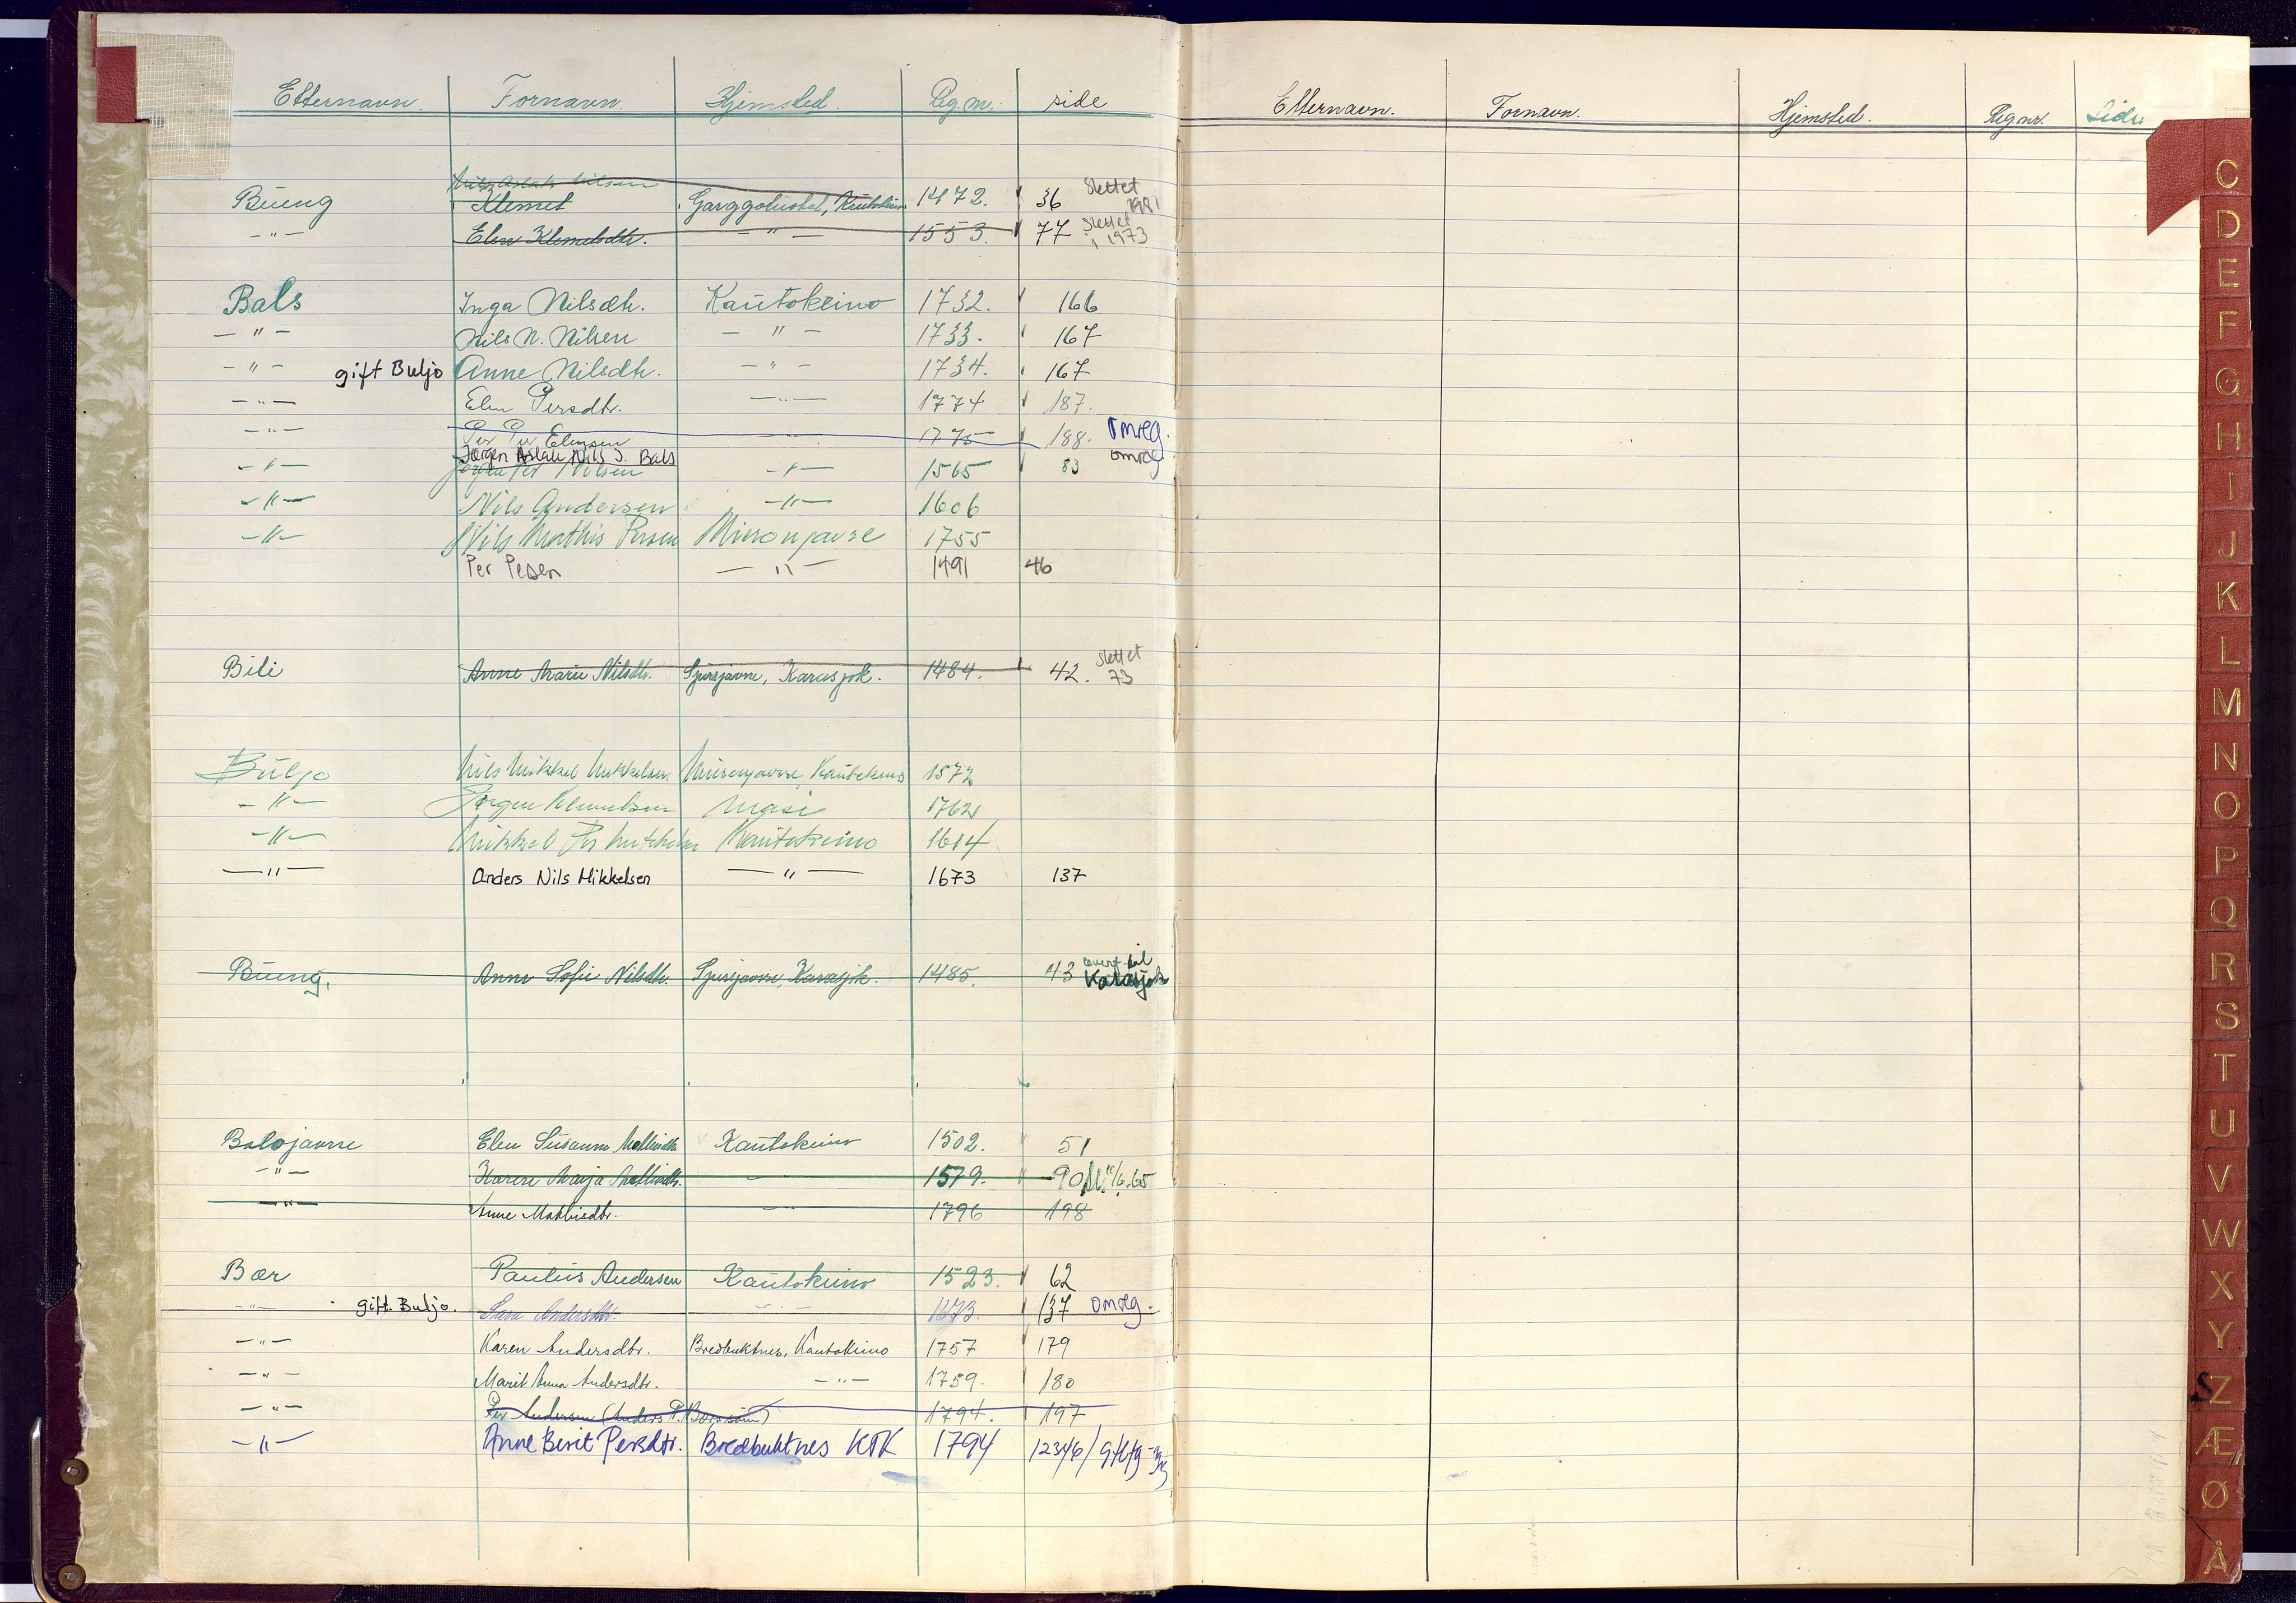 Etternavn. Fornavn. Hjemsted. Reg.nr. side
Nils Aslak Nilsen
Bueng Klemet Garggoluobal, Kautokeino 1472. 36 Slettet 1981
-"- Elen Klemetsdtr. -"- 1553. 77 Slettet i 1973
Bals Inga Nilsdtr. Kautokeino 1732. 166
-"- Nils N. Nilsen -"- 1733. 167
-"- gift Buljo Anne Nilsdtr. -"- 1734. 167
-"- Elen Persdtr. -"- 1774 187.
-"- Per Per Elensen -"- 1775 188. Omreg.
Jørgen Aslak Nils J. Bals omreg
-"- Nilsen -"- 1565 83
-"- Nils Andersen -"- 1606
-"- Nils Mathis Persen Mieronjavre 1755
Per Pesen -"- 1491 46
Biti Anne Marie Nilsdtr. Sjusjavre, Karasjok. 1484. 42. Slettet 73
Buljo Nils Mikkel Mikkelsen Mieronjavre, Kautokeino 1572
-"- Jørgen Klemetsen Masi 1762
-"- Mikkel Per Mikkelsen Kautokeino 1614
-"- Anders Nils Mikkelsen -"- 1673 137
Bueng, Anne Sofie Nilsdtr. Sjusjavre, Karasjok. 1485. 43 overf. til Karasjok
Balojavre Elen Susanne Mathisdtr. Kautokeino 1502. 51
-"- Karen Marja Mathisdtr. -"- 1579. 90 6.65
-"- Anne Mathisdtr. -"- 1796 198
Bær Paulus Andersen Kautokeino 1523. 62
-"- gift. Buljo. Sara Andersdtr. -"- 1673. 137 omreg.
-"- Karen Andersdtr. Bredbuktnes, Kautokeino 1757 179
-"- Marit Anna Andersdtr. -"- 1759. 180
-"- Per Andersen (Anders P. Bærs sönn) 1794. 197
-"- Anne Berit Persdtr. Bredbuktnes KTK 1794
Etternavn. Fornavn. Hjemsted. Reg.nr. Side.
C
D
E
F
G
H
I
J
K
L
M
N
O
P
Q
R
S
T
U
V
W
X
Y
Z
Æ
Ø
Å